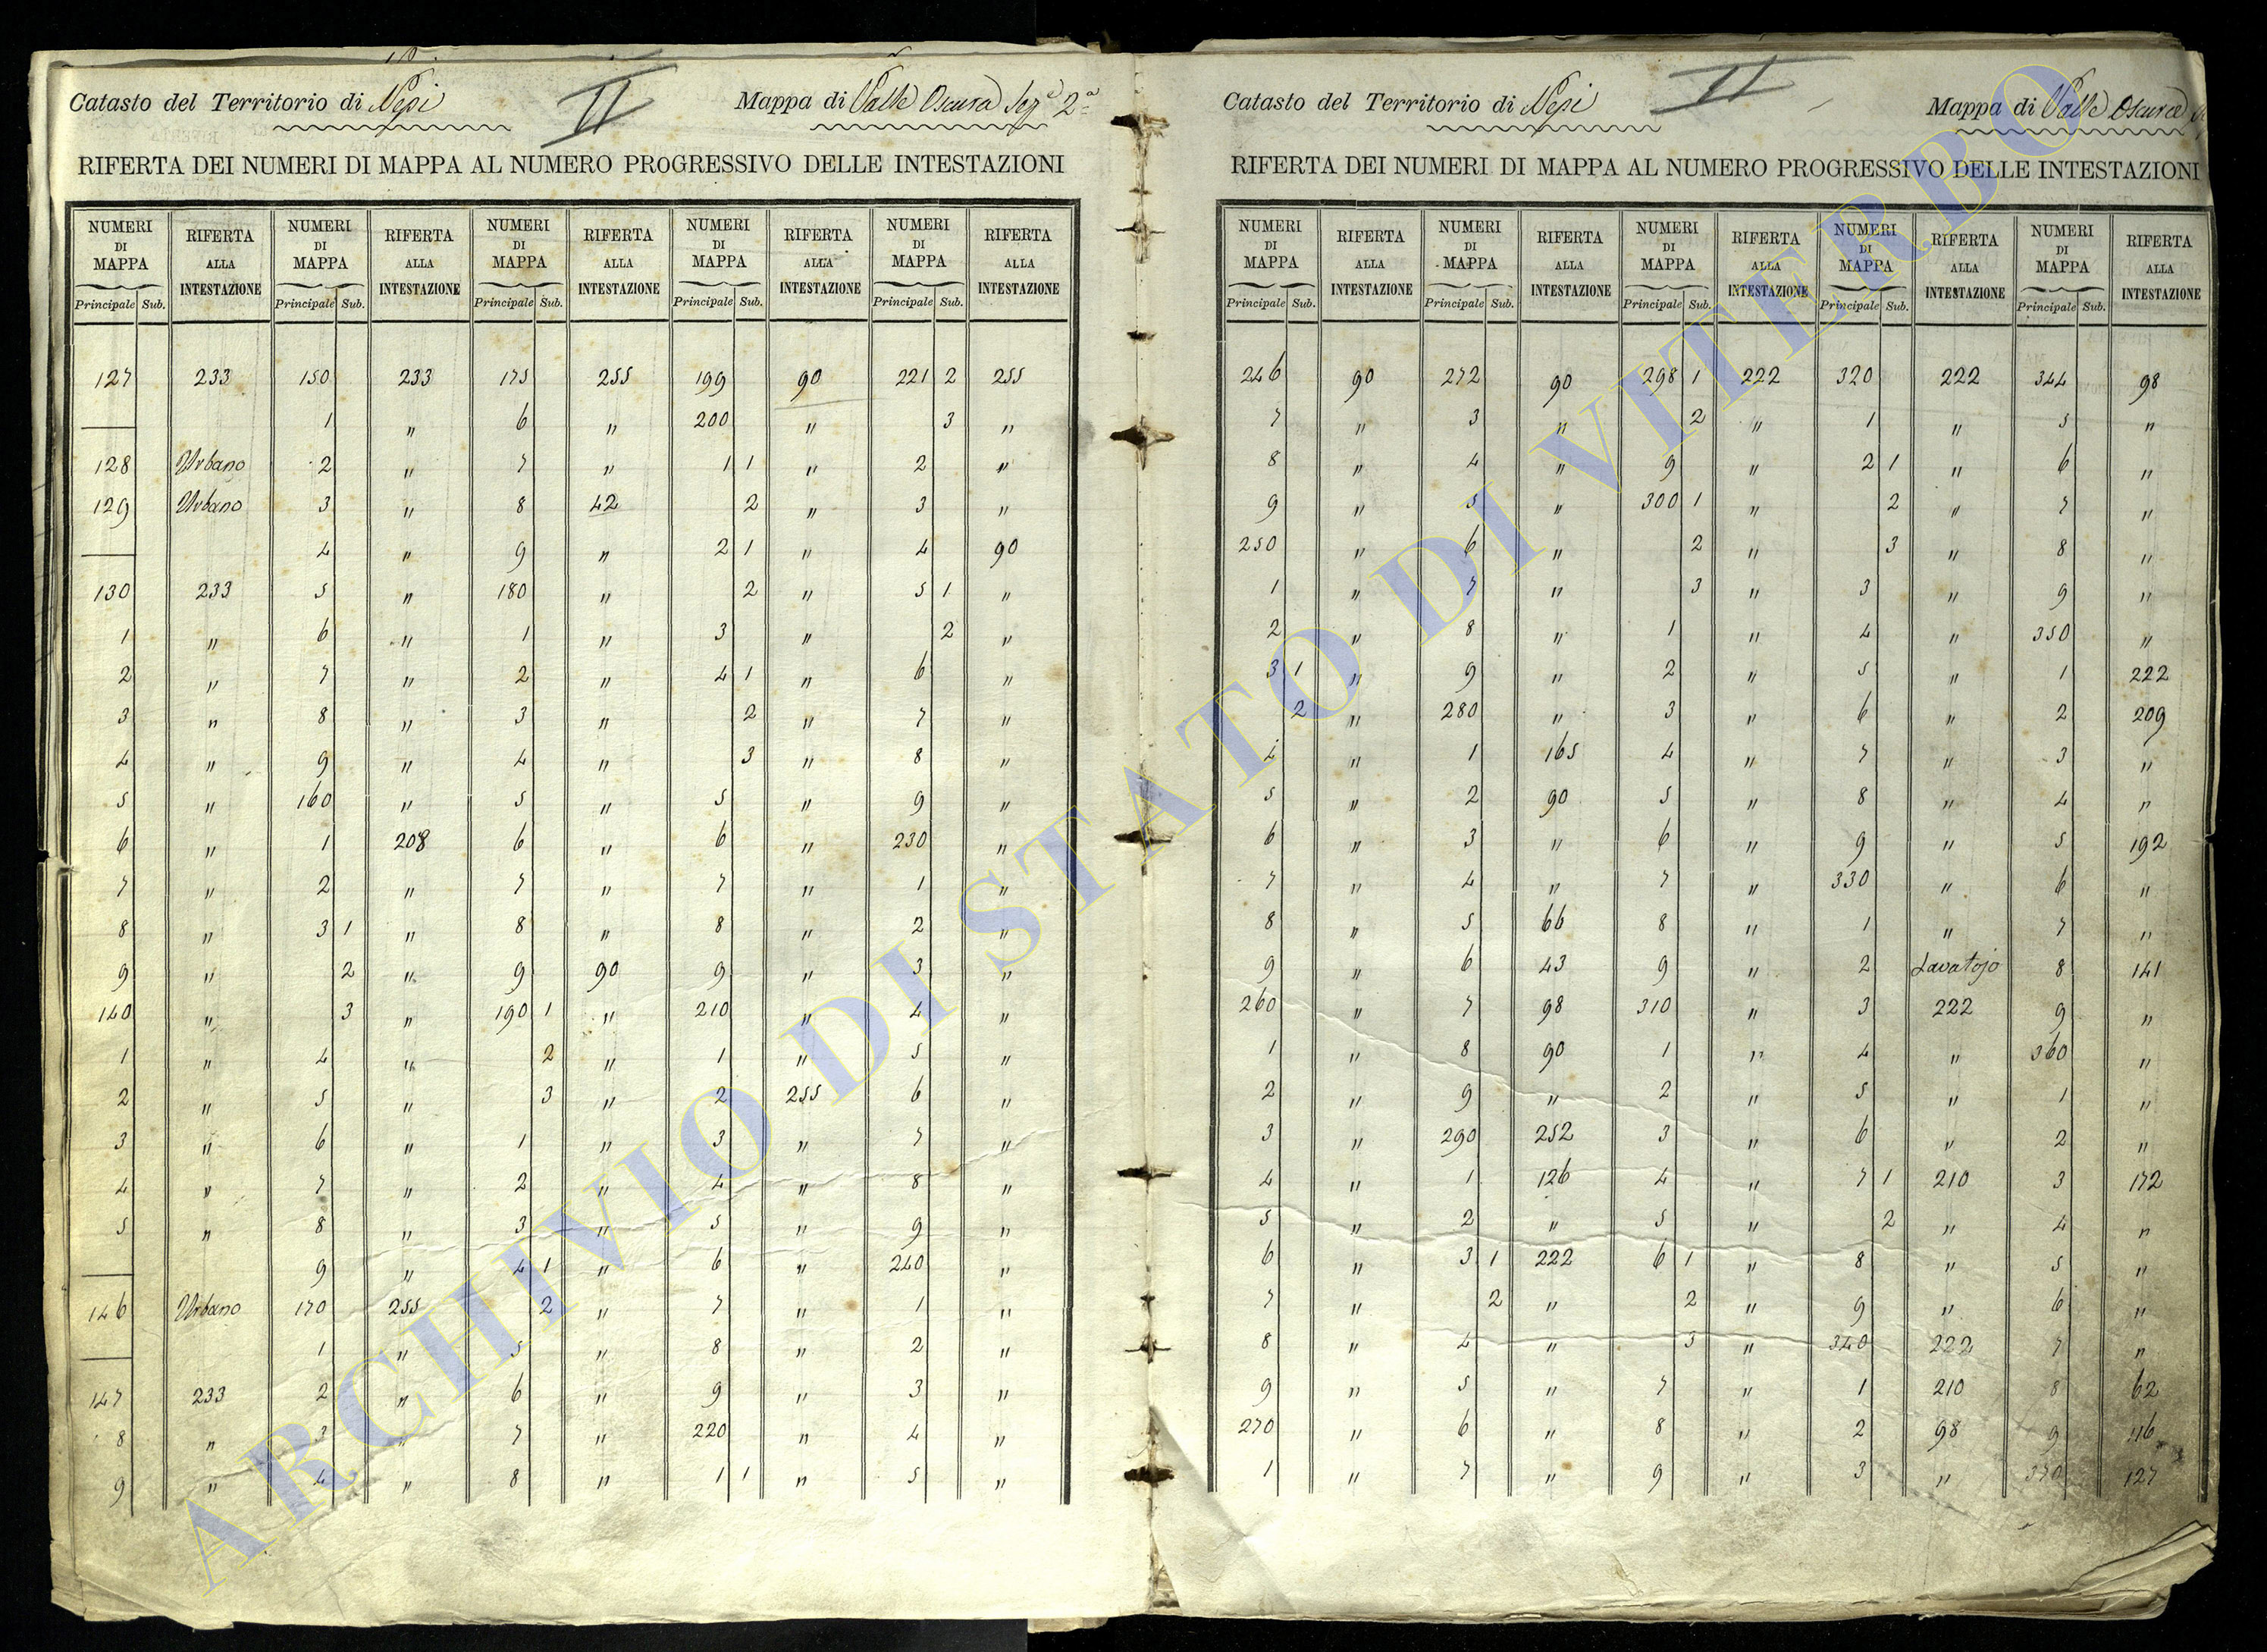 Catasto del Territorio di Nepi II Mappa di Valle Oscura Sez.e 2a
RIFERTA DEI NUMERI DI MAPPA AL NUMERO PROGRESSIVO DELLE INTESTAZIONI
NUMERI DI MAPPA RIFERTA ALLA INTESTAZIONE NUMERI DI MAPPA RIFERTA ALLA INTESTAZIONE NUMERI DI MAPPA RIFERTA ALLA INTESTAZIONE NUMERI DI MAPPA RIFERTA ALLA INTESTAZIONE NUMERI DI MAPPA RIFERTA ALLA INTESTAZIONE
Principale Sub. Principale Sub. Principale Sub. Principale Sub. Principale Sub.
127 233 150 233 175 255 199 90 221 2 255
1 " 6 " 200 " 3 "
128 Urbano 2 " 7 " 1 1 " 2 "
129 Urbano 3 " 8 42 2 " 3 "
4 " 9 " 2 1 " 4 90
130 233 5 " 180 " 2 " 5 1 "
1 " 6 " 1 " 3 " 2 "
2 " 7 " 2 " 4 1 " 6 "
3 " 8 " 3 " 2 " 7 "
4 " 9 " 4 " 3 " 8 "
5 " 160 " 5 " 5 " 9 "
6 " 1 208 6 " 6 " 230 "
7 " 2 " 7 " 7 " 1 "
8 " 3 1 " 8 " 8 " 2 "
9 " 2 " 9 90 9 " 3 "
140 " 3 " 190 1 " 210 " 4 "
1 " 4 " 2 " 1 " 5 "
2 " 5 " 3 " 2 255 6 "
3 " 6 " 1 " 3 " 7 "
4 " 7 " 2 " 4 " 8 "
5 " 8 " 3 " 5 " 9 "
9 " 4 1 " 6 " 240 "
146 Urbano 170 255 2 " 7 " 1 "
1 " 5 " 8 " 2 "
147 233 2 " 6 " 9 " 3 "
8 " 3 " 7 " 220 " 4 "
9 " 4 " 8 " 1 1 " 5 "
Catasto del Territorio di Nepi II Mappa di Valle Oscura
RIFERTA DEI NUMERI DI MAPPA AL NUMERO PROGRESSIVO DELLE INTESTAZIONI
NUMERI DI MAPPA RIFERTA ALLA INTESTAZIONE NUMERI DI MAPPA RIFERTA ALLA INTESTAZIONE NUMERI DI MAPPA RIFERTA ALLA INTESTAZIONE NUMERI DI MAPPA RIFERTA ALLA INTESTAZIONE NUMERI DI MAPPA RIFERTA ALLA INTESTAZIONE
Principale Sub. Principale Sub. Principale Sub. Principale Sub. Principale Sub.
246 90 272 90 298 1 222 320 222 344 98
7 " 3 " 2 " 1 " 5 "
8 " 4 " 9 " 2 1 " 6 "
9 " 5 " 300 1 " 2 " 7 "
250 " 6 " 2 " 3 " 8 "
1 " 7 " 3 " 3 " 9 "
2 " 8 " 1 " 4 " 350 "
3 1 " 9 " 2 " 5 " 1 222
2 " 280 " 3 " 6 " 2 209
4 " 1 165 4 " 7 " 3 "
5 " 2 90 5 " 8 " 4 "
6 " 3 " 6 " 9 " 5 192
7 " 4 " 7 " 330 " 6 "
8 " 5 66 8 " 1 " 7 "
9 " 6 43 9 " 2 Lavatojo 8 141
260 " 7 98 310 " 3 222 9 "
1 " 8 90 1 " 4 " 360 "
2 " 9 " 2 " 5 " 1 "
3 " 290 252 3 " 6 " 2 "
4 " 1 126 4 " 7 1 210 3 172
5 " 2 " 5 " 2 " 4 "
6 " 3 1 222 6 1 " 8 " 5 "
7 " 2 " 2 " 9 " 6 "
8 " 4 " 3 " 340 222 7 "
9 " 5 " 7 " 1 210 8 62
270 " 6 " 8 " 2 98 9 116
1 " 7 " 9 " 3 " 370 127
ARCHIVIO DI STATO DI VITERBO